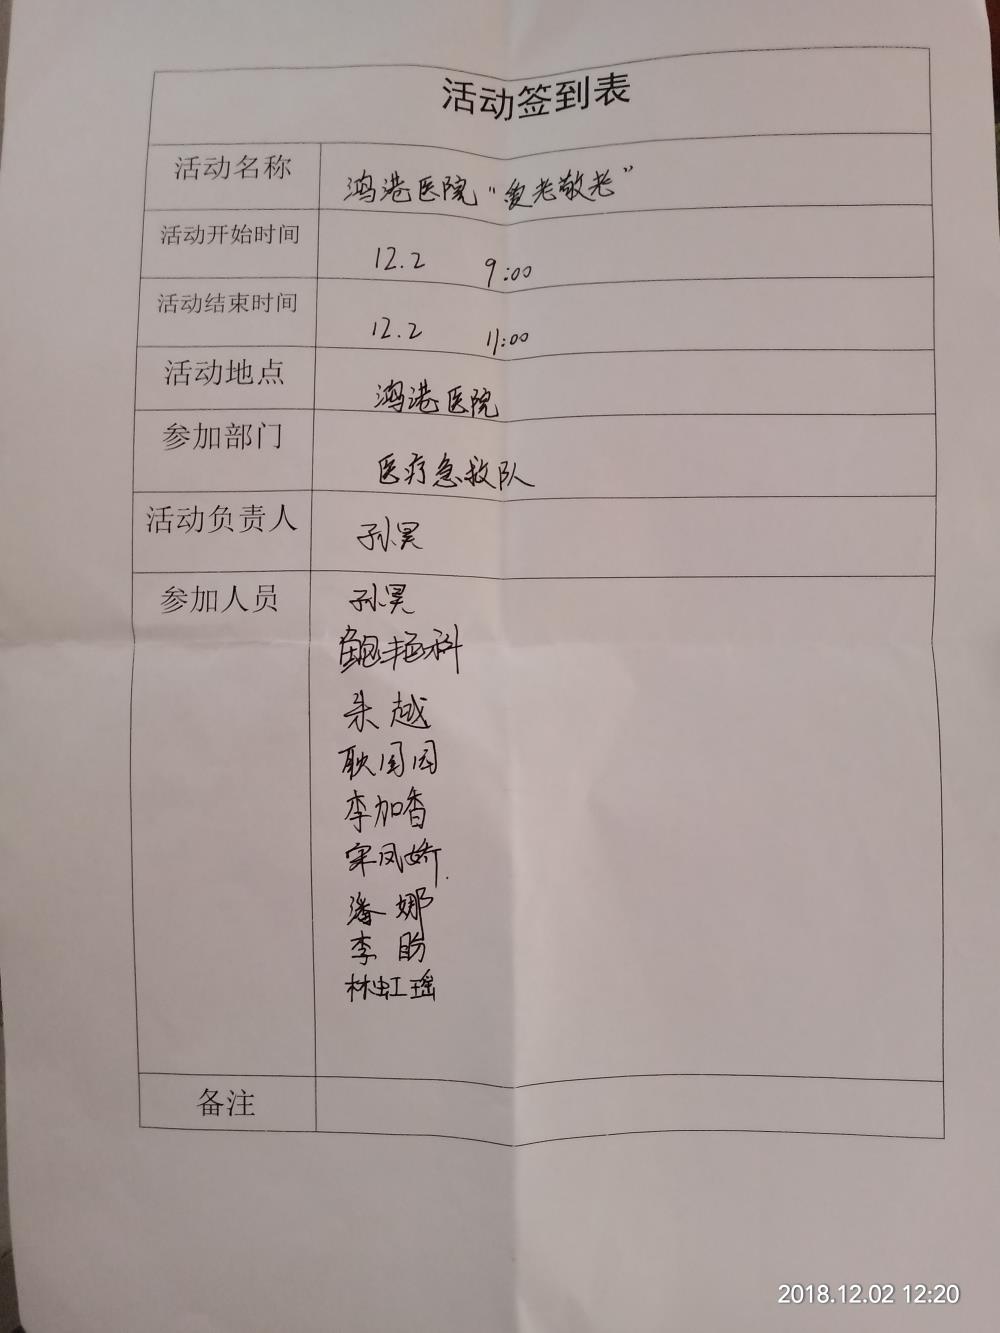 活动签到表
活动名称 鸿港医院“爱老敬老”
活动开始时间 12.2 9:00
活动结束时间 12.2 11:00
活动地点 鸿港医院
参加部门 医疗急救队
活动负责人 孙昊
参加人员 孙昊
鲍艳科
朱越
耿园园
李加香
宋凤娇
潘娜
李盼
林虹瑶
备注
2018.12.02 12:20